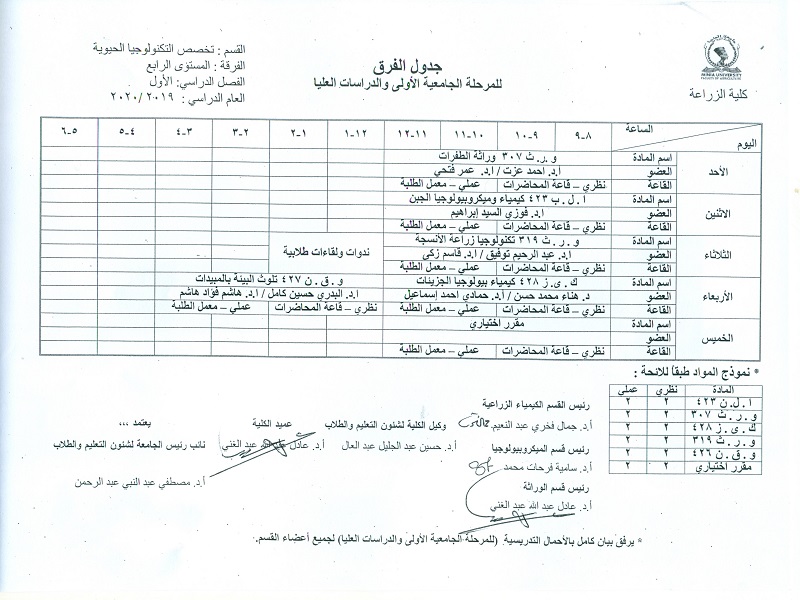 القسم : تخصص التكنولوجيا الحيوية
الفرقة : المستوى الرابع
الفصل الدراسي: الأول
العام الدراسي : ٢٠١٩/ ٢٠٢٠
جدول الفرق
للمرحلة الجامعية الأولى والدراسات العليا
MINIA UNIVERSITY
كلية الزراعة
الساعة
اليوم
٨-٩ ٩-١٠ ١٠-١١ ١١-١٢ ١٢-١ ١-٢ ٢-٣ ٣-٤ ٤-٥ ٥-٦
الأحد
اسم المادة و . ر . ث ٣٠٧ وراثة الطفرات
العضو ا.د. احمد عزت / ا.د. عمر فتحي
القاعة نظري – قاعة المحاضرات عملي – معمل الطلبة
الاثنين
اسم المادة ا . ل . ب ٤٢٣ كيمياء وميكروبيولوجيا الجبن
العضو ا.د. فوزي السيد إبراهيم
القاعة نظري – قاعة المحاضرات عملي – معمل الطلبة
الثلاثاء
اسم المادة و . ر . ث ٣١٩ تكنولوجيا زراعة الانسجة
العضو ا.د. عبد الرحيم توفيق / ا.د. قاسم زكى
القاعة نظري – قاعة المحاضرات عملي – معمل الطلبة
ندوات ولقاءات طلابية
الأربعاء
اسم المادة ك . ى . ز ٤٢٨ كيمياء بيولوجيا الجزيئات و . ق . ن ٤٢٧ تلوث البيئة بالمبيدات
العضو د. هناء محمد حسن / ا.د. حمادي احمد إسماعيل ا.د. البدري حسين كامل / ا.د. هاشم فؤاد هاشم
القاعة نظري – قاعة المحاضرات عملي – معمل الطلبة نظري – قاعة المحاضرات عملي – معمل الطلبة
الخميس
اسم المادة مقرر اختياري
العضو
القاعة نظري – قاعة المحاضرات عملي – معمل الطلبة
* نموذج المواد طبقا للائحة :
المادة نظري عملي
ا . ل . ن ٤٢٣ ٢ ٢
و . ر . ث ٣٠٧ ٢ ٢
ك . ى . ز ٤٢٨ ٢ ٢
و . ر . ث ٣١٩ ٢ ٢
و . ق . ن ٤٢٦ ٢ ٢
مقرر اختياري ٢ ٢
رئيس القسم الكيمياء الزراعية
أ.د. جمال فخري عبد النعيم
رئيس قسم الميكروبيولوجيا
أ.د. سامية فرحات محمد
رئيس قسم الوراثة
أ.د. عادل عبد الله عبد الغني
وكيل الكلية لشئون التعليم والطلاب
أ.د. حسين عبد الجليل عبد العال
عميد الكلية
أ.د. عادل عبد الغني
يعتمد ،،،
نائب رئيس الجامعة لشئون التعليم والطلاب
أ.د. مصطفي عبد النبي عبد الرحمن
* يرفق بيان كامل بالأحمال التدريسية (للمرحلة الجامعية الأولى والدراسات العليا) لجميع أعضاء القسم.